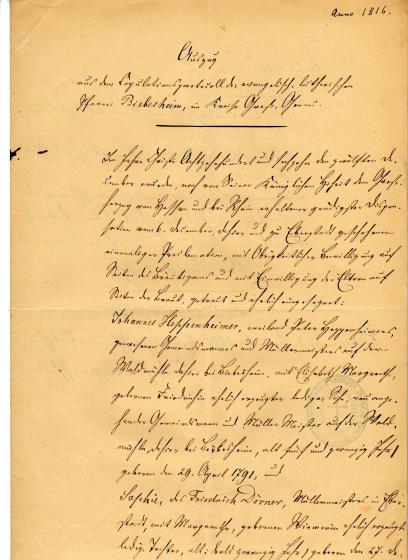 Anno 1816.
Auszug
aus dem Copulationsprotocoll der evangelisch lutherischen
Pfarrei Biebesheim, im Kreise Groß-Gerau.
Im Jahre Christi Achtzehnhundert und sechzehn den zwölften De-
cember wurden, nach von Seiner Königlichen Hoheit dem Groß-
herzog von Hessen und bei Rhein erhaltener gnädigster Dispen-
sation vom 6. December, dahier und zu Eberstadt geschehener
einmaliger Proclamation, mit Obrigkeitlicher Bewilligung auf
Seiten des Bräutigams und mit Einwilligung der Eltern auf
Seiten der Braut, getraut und ehelich eingesegnet:
Johannes Heppenheimer, weiland Peter Heppenheimers,
gewesenen Gemeindsmannes und Müllermeisters auf der
Waldmühle dahier bei Biebesheim, mit Elisabeth Margareth,
geborenen Friedrichin ehelich erzeugter lediger Sohn, neu ange-
hender Gemeindsmann und Müller Meister auf der Wald-
mühle, dahier bei Biebesheim, alt fünf und zwanzig Jahr,
geboren den 29. April 1791, und
Sophie, des Friedrich Dörner, Müllermeisters in Eber-
stadt, mit Margareth, geborenen ehelich erzeugte
ledige Tochter, alt zwanzig Jahr, geboren den 27. De-